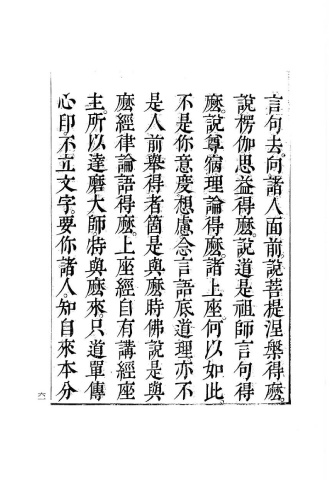 言句去。向諸人面前。說菩提涅槃得麽。
說楞伽思益得麽。說道是祖師言句得
麽。說尊宿理論得麽。諸上座。何以如此。
不是你意度想慮念言語底道理亦不
是人前舉得者箇是與麽時佛說是與
麽經律論語得麽。上座經自有講經座
主。所以達磨大師特與麽來。只道單傳
心印。不立文字。要你諸人。知自來本分
六一